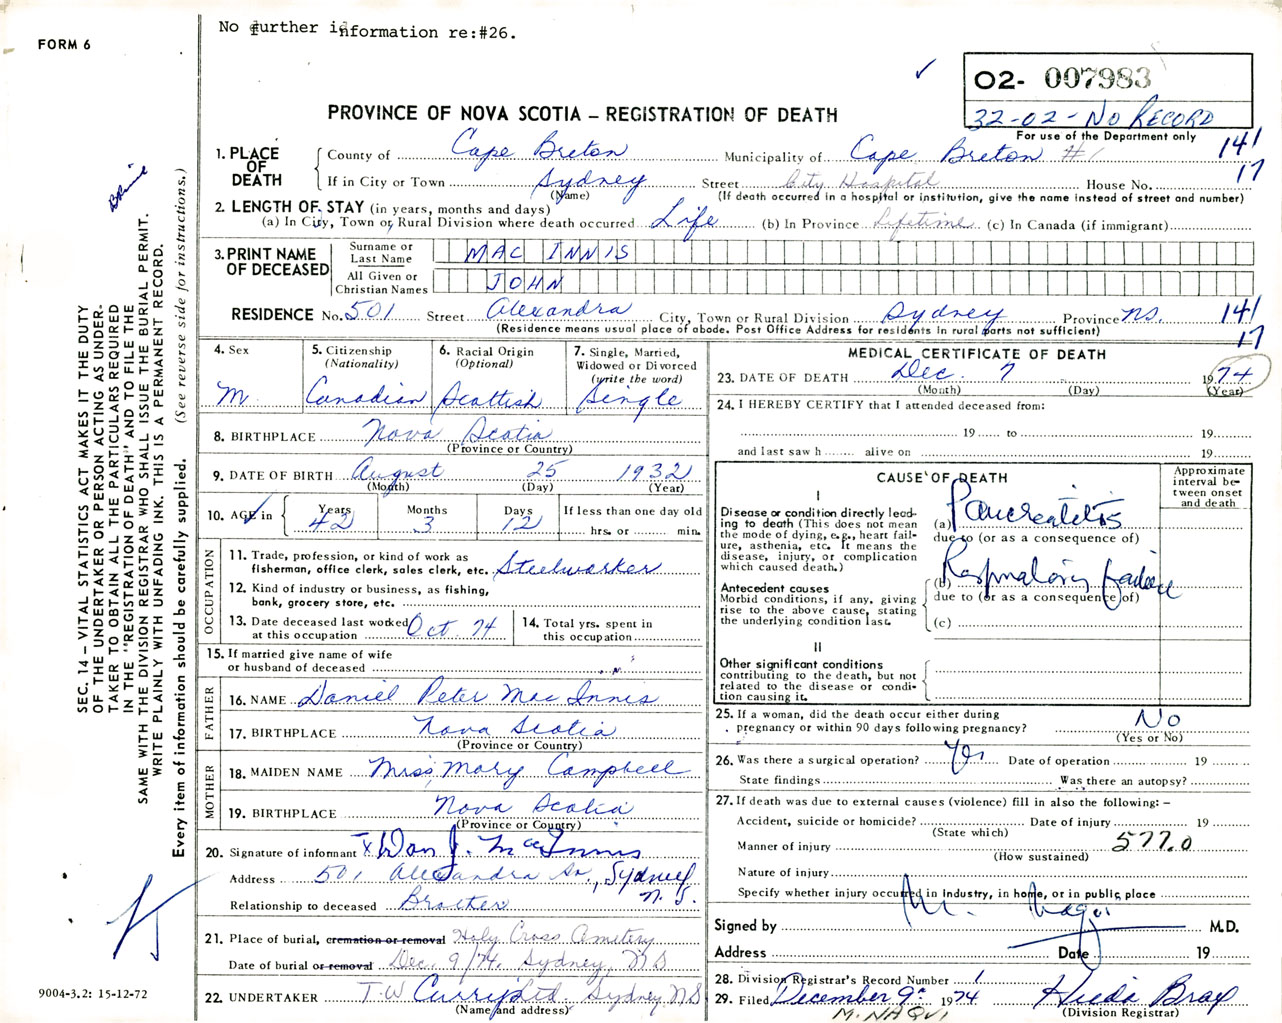 No further information re:#26.
FORM 6
O2- 007983
32-02-No Record
For use of the Department only
PROVINCE OF NOVA SCOTIA – REGISTRATION OF DEATH
1. PLACE OF DEATH
County of Cape Breton Municipality of Cape Breton #1 141
If in City or Town Sydney Street City Hospital House No. 17
(Name) (If death occurred in a hospital or institution, give the name instead of street and number)
2. LENGTH OF STAY (in years, months and days)
(a) In City, Town or Rural Division where death occurred Life (b) In Province Lifetime (c) In Canada (if immigrant)
3. PRINT NAME OF DECEASED
Surname or Last Name MAC INNIS
All Given or Christian Names JOHN
RESIDENCE No. 501 Street Alexandra City, Town or Rural Division Sydney Province N.S. 141
(Residence means usual place of abode. Post Office Address for residents in rural parts not sufficient) 17
4. Sex M
5. Citizenship (Nationality) Canadian
6. Racial Origin (Optional) Scottish
7. Single, Married, Widowed or Divorced (write the word) Single
8. BIRTHPLACE Nova Scotia
(Province or Country)
9. DATE OF BIRTH August 25 1932
(Month) (Day) (Year)
10. AGE in Years 42 Months 3 Days 12 If less than one day old
hrs. or min.
OCCUPATION
11. Trade, profession, or kind of work as
fisherman, office clerk, sales clerk, etc. Steelworker
12. Kind of industry or business, as fishing,
bank, grocery store, etc.
13. Date deceased last worked at this occupation Oct. 74
14. Total yrs. spent in this occupation
15. If married give name of wife
or husband of deceased
FATHER
16. NAME Daniel Peter Mac Innis
17. BIRTHPLACE Nova Scotia
(Province or Country)
MOTHER
18. MAIDEN NAME Miss Mary Campbell
19. BIRTHPLACE Nova Scotia
(Province or Country)
20. Signature of informant x Dan J. MacInnis
Address 501 Alexandra St., Sydney N.S.
Relationship to deceased Brother
21. Place of burial, cremation or removal Holy Cross Cemetery
Date of burial or removal Dec. 9/74. Sydney, NS
22. UNDERTAKER T.W. Curry Ltd. Sydney, NS
(Name and address)
MEDICAL CERTIFICATE OF DEATH
23. DATE OF DEATH Dec. 7 1974
(Month) (Day) (Year)
24. I HEREBY CERTIFY that I attended deceased from:
19 to 19
and last saw h alive on 19
CAUSE OF DEATH
Approximate interval between onset and death
I
Disease or condition directly leading to death (This does not mean the mode of dying, e.g., heart failure, asthenia, etc. It means the disease, injury, or complication which caused death.)
(a) Pancreatitis
due to (or as a consequence of)
Antecedent causes
Morbid conditions, if any, giving rise to the above cause, stating the underlying condition last.
(b) Respiratory failure
due to (or as a consequence of)
(c)
II
Other significant conditions
contributing to the death, but not related to the disease or condition causing it.
25. If a woman, did the death occur either during
pregnancy or within 90 days following pregnancy? No
(Yes or No)
26. Was there a surgical operation? Yes Date of operation 19
State findings Was there an autopsy?
27. If death was due to external causes (violence) fill in also the following: –
Accident, suicide or homicide? Date of injury 19
(State which)
Manner of injury 577.0
(How sustained)
Nature of injury
Specify whether injury occurred in industry, in home, or in public place
Signed by M. Naqui M.D.
Address Date 19
28. Division Registrar's Record Number 1
29. Filed December 9th 1974 Hilda Bray
(Division Registrar)
M. NAQUI
SEC. 14 – VITAL STATISTICS ACT MAKES IT THE DUTY
OF THE UNDERTAKER OR PERSON ACTING AS UNDER-
TAKER TO OBTAIN ALL THE PARTICULARS REQUIRED
IN THE "REGISTRATION OF DEATH" AND TO FILE THE
SAME WITH THE DIVISION REGISTRAR WHO SHALL ISSUE THE BURIAL PERMIT.
WRITE PLAINLY WITH UNFADING INK. THIS IS A PERMANENT RECORD.
Every item of information should be carefully supplied. (See reverse side for instructions.)
9004-3.2: 15-12-72